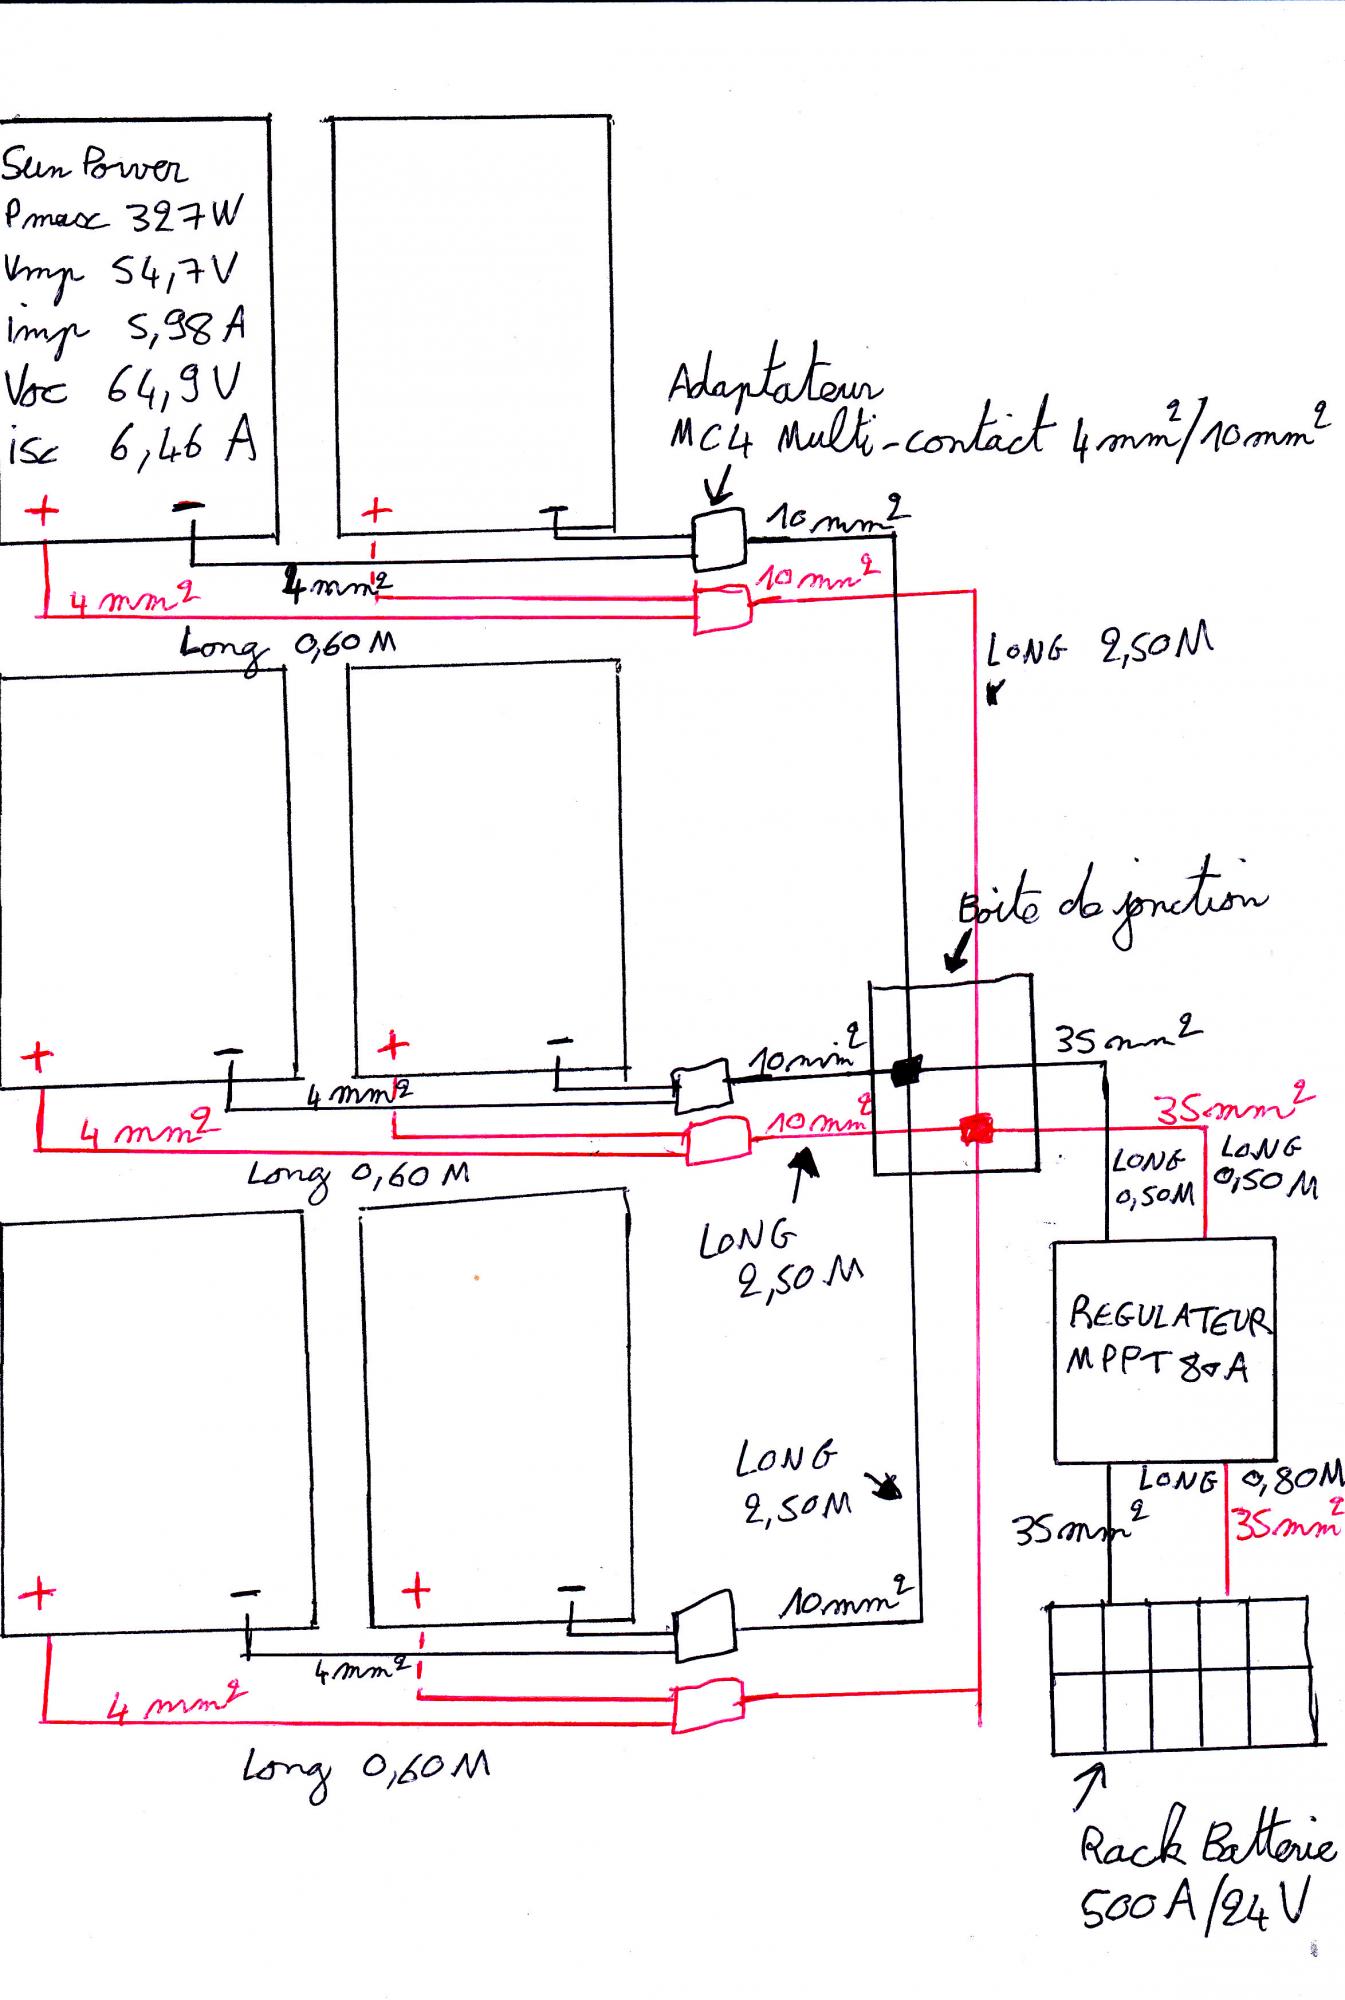 Sun Power
Pmax 327W
Vmp 54,7V
imp 5,98 A
Voc 64,9V
isc 6,46 A
+ - + -
Adaptateur
MC4 Multi-contact 4mm²/10mm²
10mm²
4mm²
10mm²
4mm²
Long 0,60M
LONG 2,50M
Boite de jonction
+ - + -
10mm²
35mm²
4mm²
10mm²
35mm²
4mm²
Long 0,60M
LONG
0,50M
LONG
0,50M
LONG
2,50M
REGULATEUR
MPPT 80A
LONG
2,50M
LONG 0,80M
35mm²
35mm²
+ - + -
10mm²
4mm²
4mm²
Long 0,60M
Rack Batterie
500A/24V